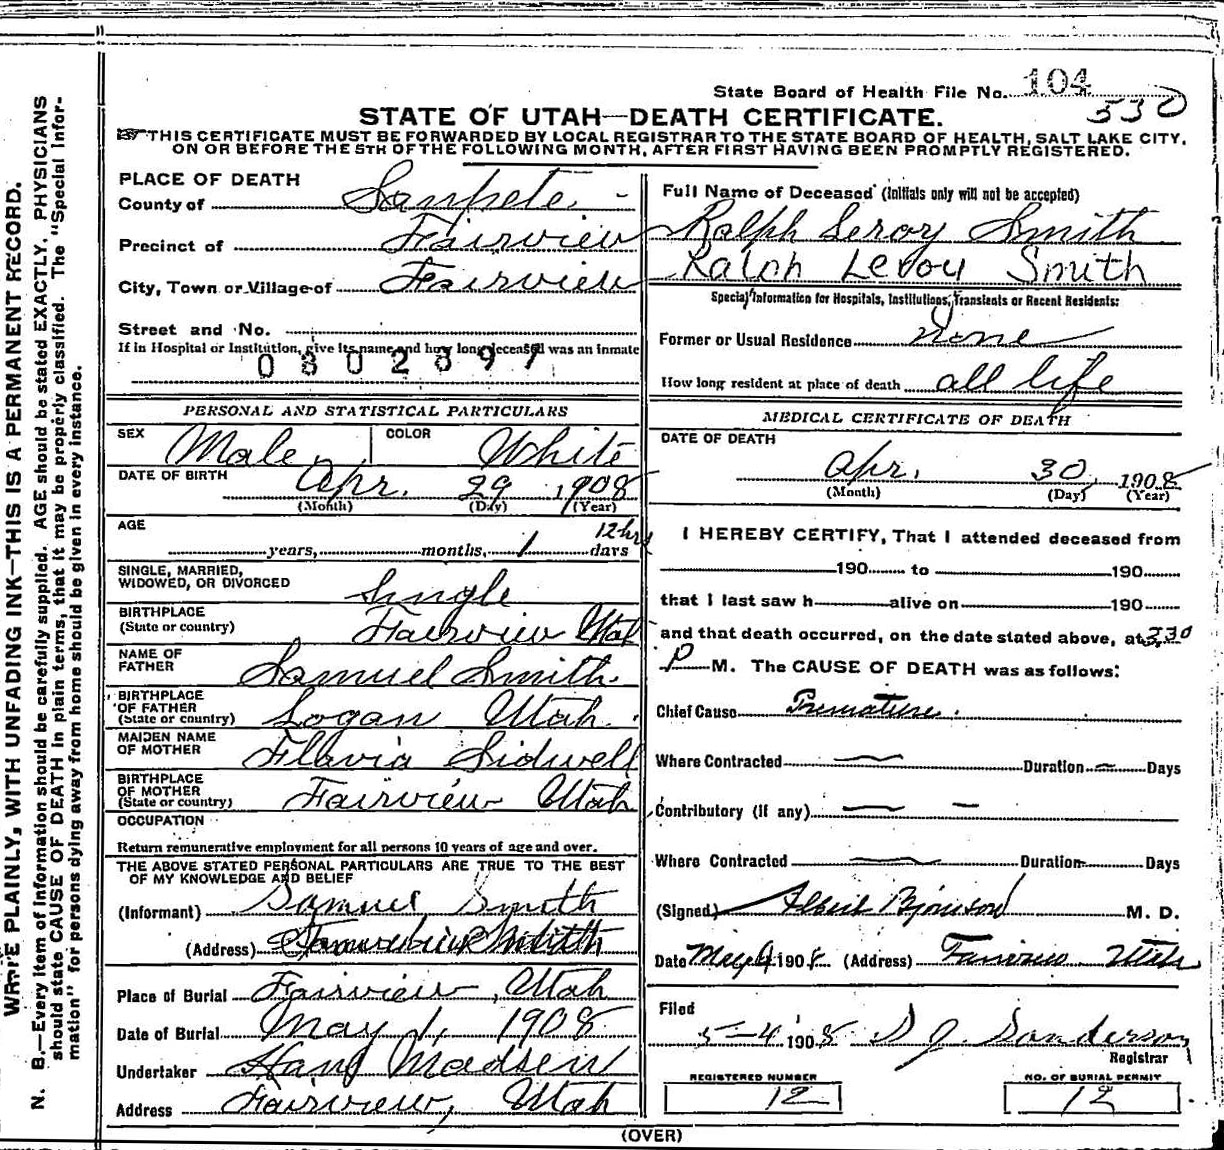 State Board of Health File No. 104
530
STATE OF UTAH—DEATH CERTIFICATE.
THIS CERTIFICATE MUST BE FORWARDED BY LOCAL REGISTRAR TO THE STATE BOARD OF HEALTH, SALT LAKE CITY,
ON OR BEFORE THE 5TH OF THE FOLLOWING MONTH, AFTER FIRST HAVING BEEN PROMPTLY REGISTERED.
WRITE PLAINLY, WITH UNFADING INK—THIS IS A PERMANENT RECORD.
N. B.—Every item of information should be carefully supplied. AGE should be stated EXACTLY. PHYSICIANS
should state CAUSE OF DEATH in plain terms, that it may be properly classified. The "Special Infor-
mation" for persons dying away from home should be given in every instance.
PLACE OF DEATH
County of Sanpete
Precinct of Fairview
City, Town or Village of Fairview
Street and No.
If in Hospital or Institution, give its name and how long deceased was an inmate
0802897
PERSONAL AND STATISTICAL PARTICULARS
SEX Male COLOR White
DATE OF BIRTH Apr. 29, 1908
(Month) (Day) (Year)
AGE 12 hrs
years, months, 1 days
SINGLE, MARRIED,
WIDOWED, OR DIVORCED Single
BIRTHPLACE
(State or country) Fairview Utah
NAME OF
FATHER Samuel Smith
BIRTHPLACE
OF FATHER
(State or country) Logan Utah.
MAIDEN NAME
OF MOTHER Flavia Sidwell
BIRTHPLACE
OF MOTHER
(State or country) Fairview Utah
OCCUPATION
Return remunerative employment for all persons 10 years of age and over.
THE ABOVE STATED PERSONAL PARTICULARS ARE TRUE TO THE BEST
OF MY KNOWLEDGE AND BELIEF
(Informant) Samuel Smith
(Address)
Place of Burial Fairview, Utah
Date of Burial May 1, 1908
Undertaker Hans Madsen
Address Fairview, Utah
Full Name of Deceased (Initials only will not be accepted)
Ralph Leroy Smith
Ralph Leroy Smith
Special Information for Hospitals, Institutions, Transients or Recent Residents:
Former or Usual Residence none
How long resident at place of death all life
MEDICAL CERTIFICATE OF DEATH
DATE OF DEATH
Apr. 30, 1908
(Month) (Day) (Year)
I HEREBY CERTIFY, That I attended deceased from
190 to 190
that I last saw h alive on 190
and that death occurred, on the date stated above, at 3.30
P M. The CAUSE OF DEATH was as follows:
Chief Cause Premature.
Where Contracted — Duration — Days
Contributory (if any) — —
Where Contracted — Duration Days
(Signed) M. D.
Date May 1908. (Address) Fairview Utah
Filed
5-4 1908 S J Sanderson
Registrar
REGISTERED NUMBER NO. OF BURIAL PERMIT
12 12
(OVER)